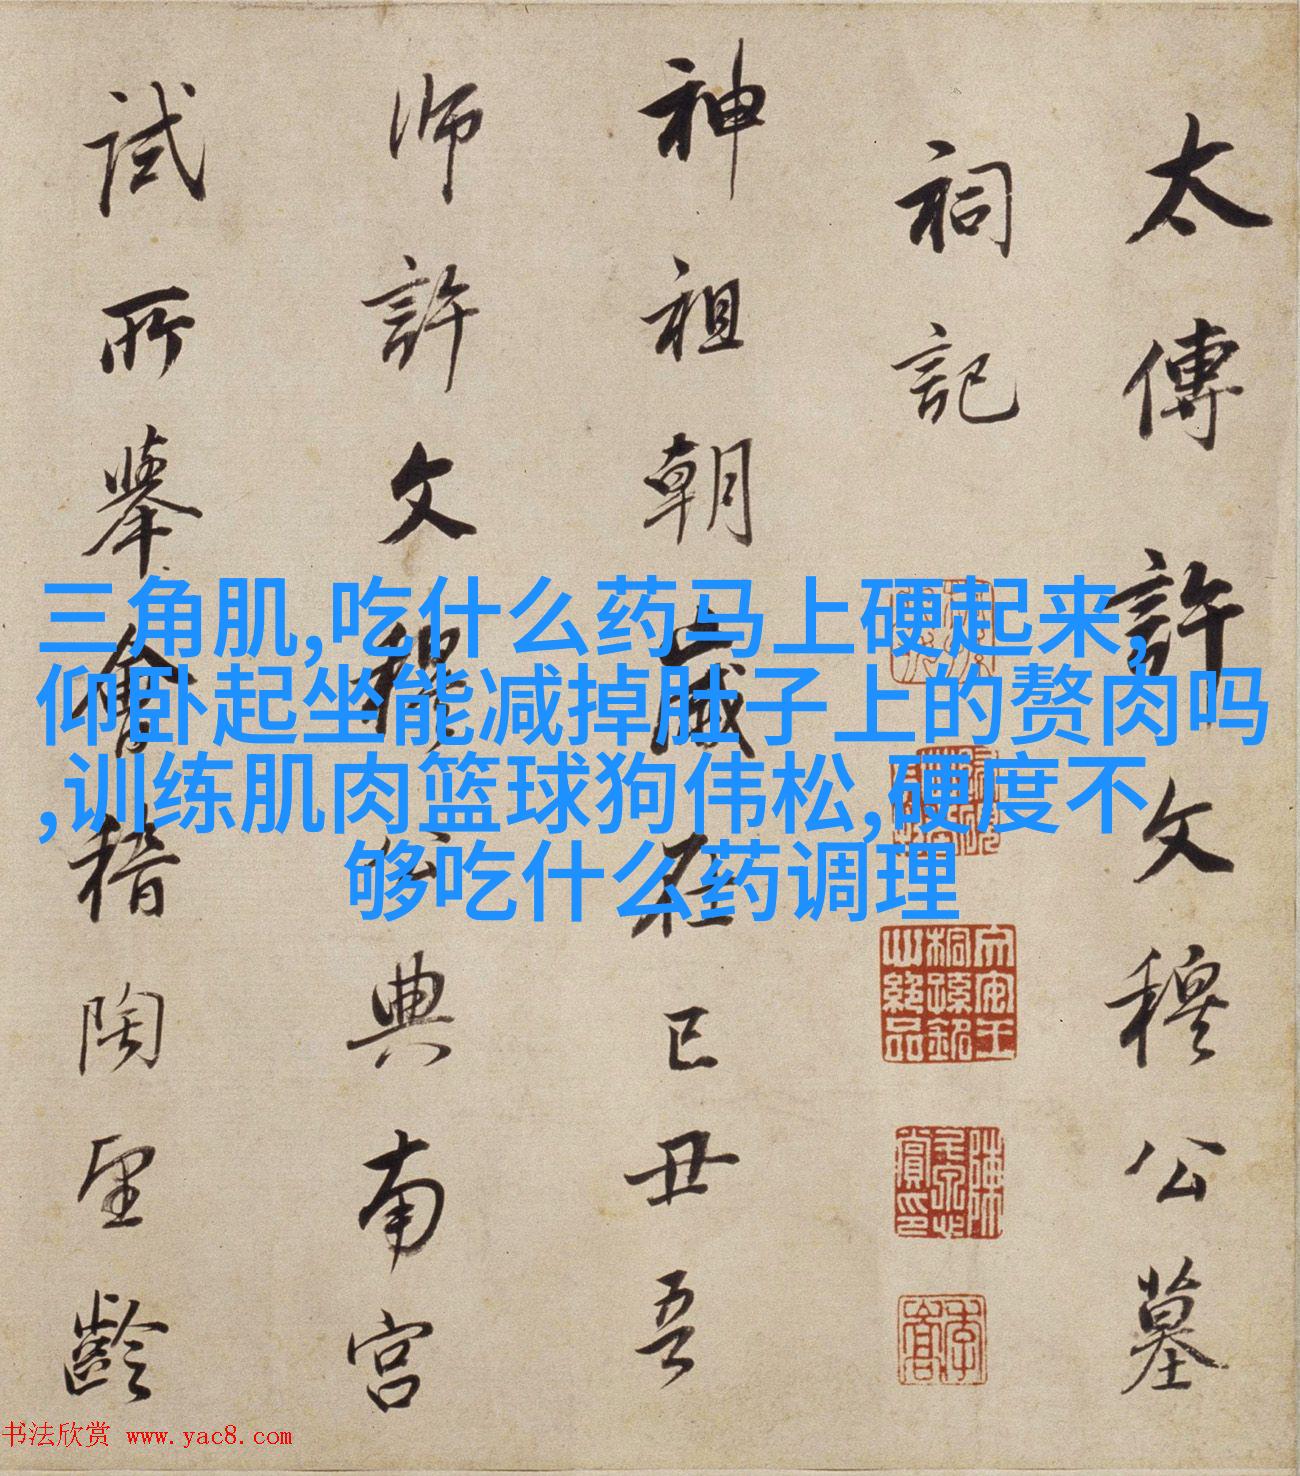 太傳許文穆公墓
祠記
神祖朝歲在己丑吾
師許文穆公典南宮
試所舉會稽陶望齡
三角肌,吃什么药马上硬起来,
仰卧起坐能减掉肚子上的赘肉吗
,训练肌肉篮球狗伟松,硬度不
够吃什么药调理
书法欣赏 www.yac8.com